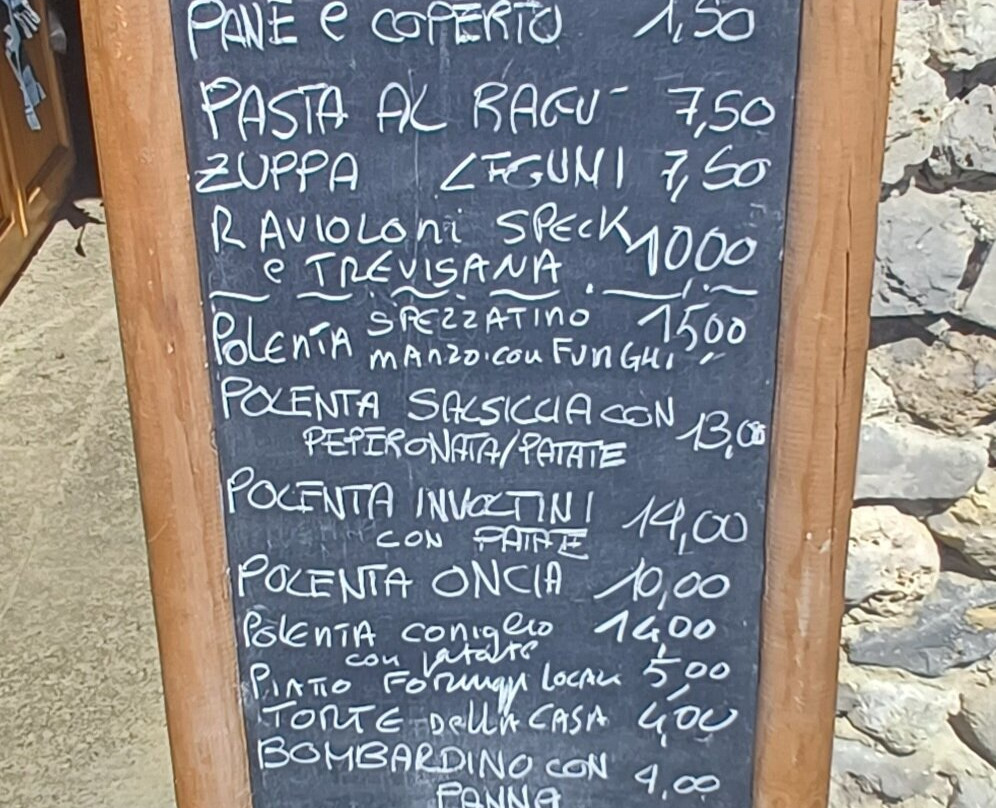 PANE e COPERTO 1,50
PASTA AL RAGU' 7,50
ZUPPA LEGUMI 7,50
RAVIOLONI SPECK 1000
e TREVISANA
POLENTA SPEZZATINO 15,00
MANZO CON FUNGHI
POLENTA SALSICCIA CON 13,00
PEPERONATA/PATATE
POLENTA INVOLTINI 14,00
CON PATATE
POLENTA ONCIA 10,00
POLENTA coniglio 14,00
con patate
PIATTO FORMAGGI LOCALI 5,00
TORTE DELLA CASA 4,00
BOMBARDINO CON 4,00
PANNA